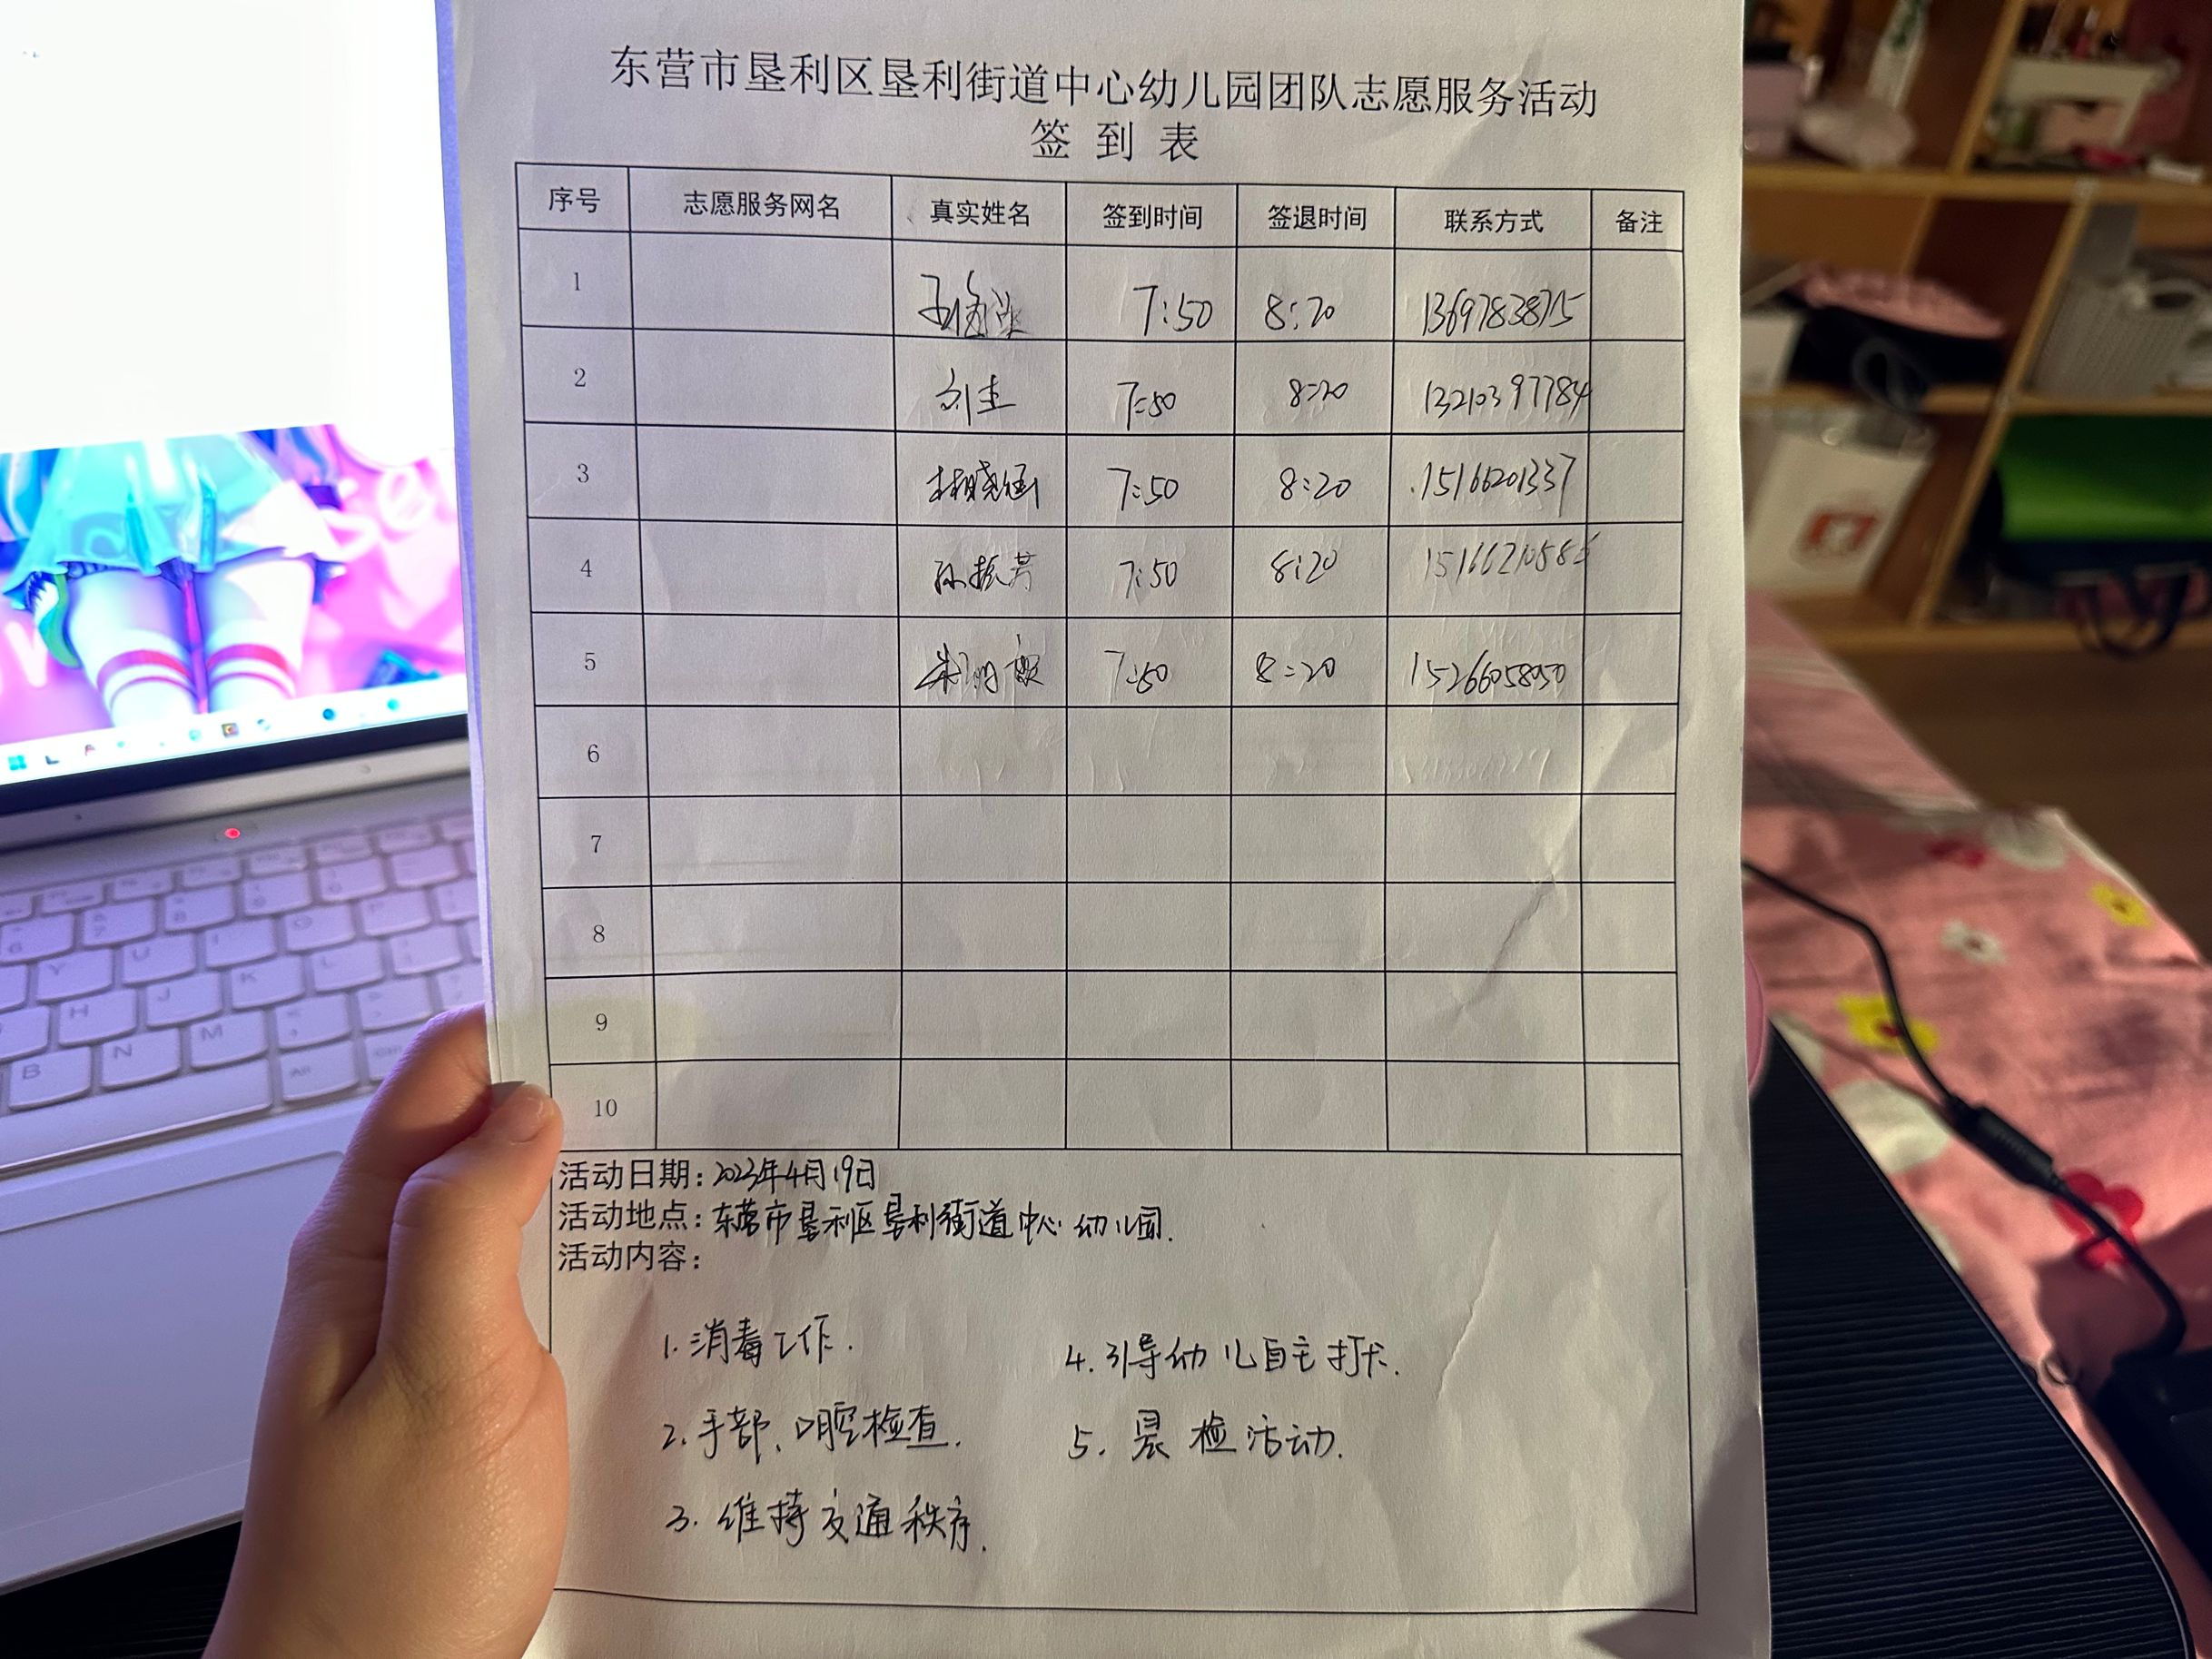 东营市垦利区垦利街道中心幼儿园团队志愿服务活动
签到表
序号 志愿服务网名 真实姓名 签到时间 签退时间 联系方式 备注
1 7:50 8:20 13697838715
2 7:50 8:20 13210397784
3 7:50 8:20 15166201337
4 孙振芳 7:50 8:20
5 7:50 8:20 15266058050
6
7
8
9
10
活动日期：2023年4月19日
活动地点：东营市垦利区垦利街道中心幼儿园.
活动内容：
1. 消毒工作.
4. 引导幼儿自主打卡.
2. 手部、口腔检查.
5. 晨检活动.
3. 维持交通秩序.